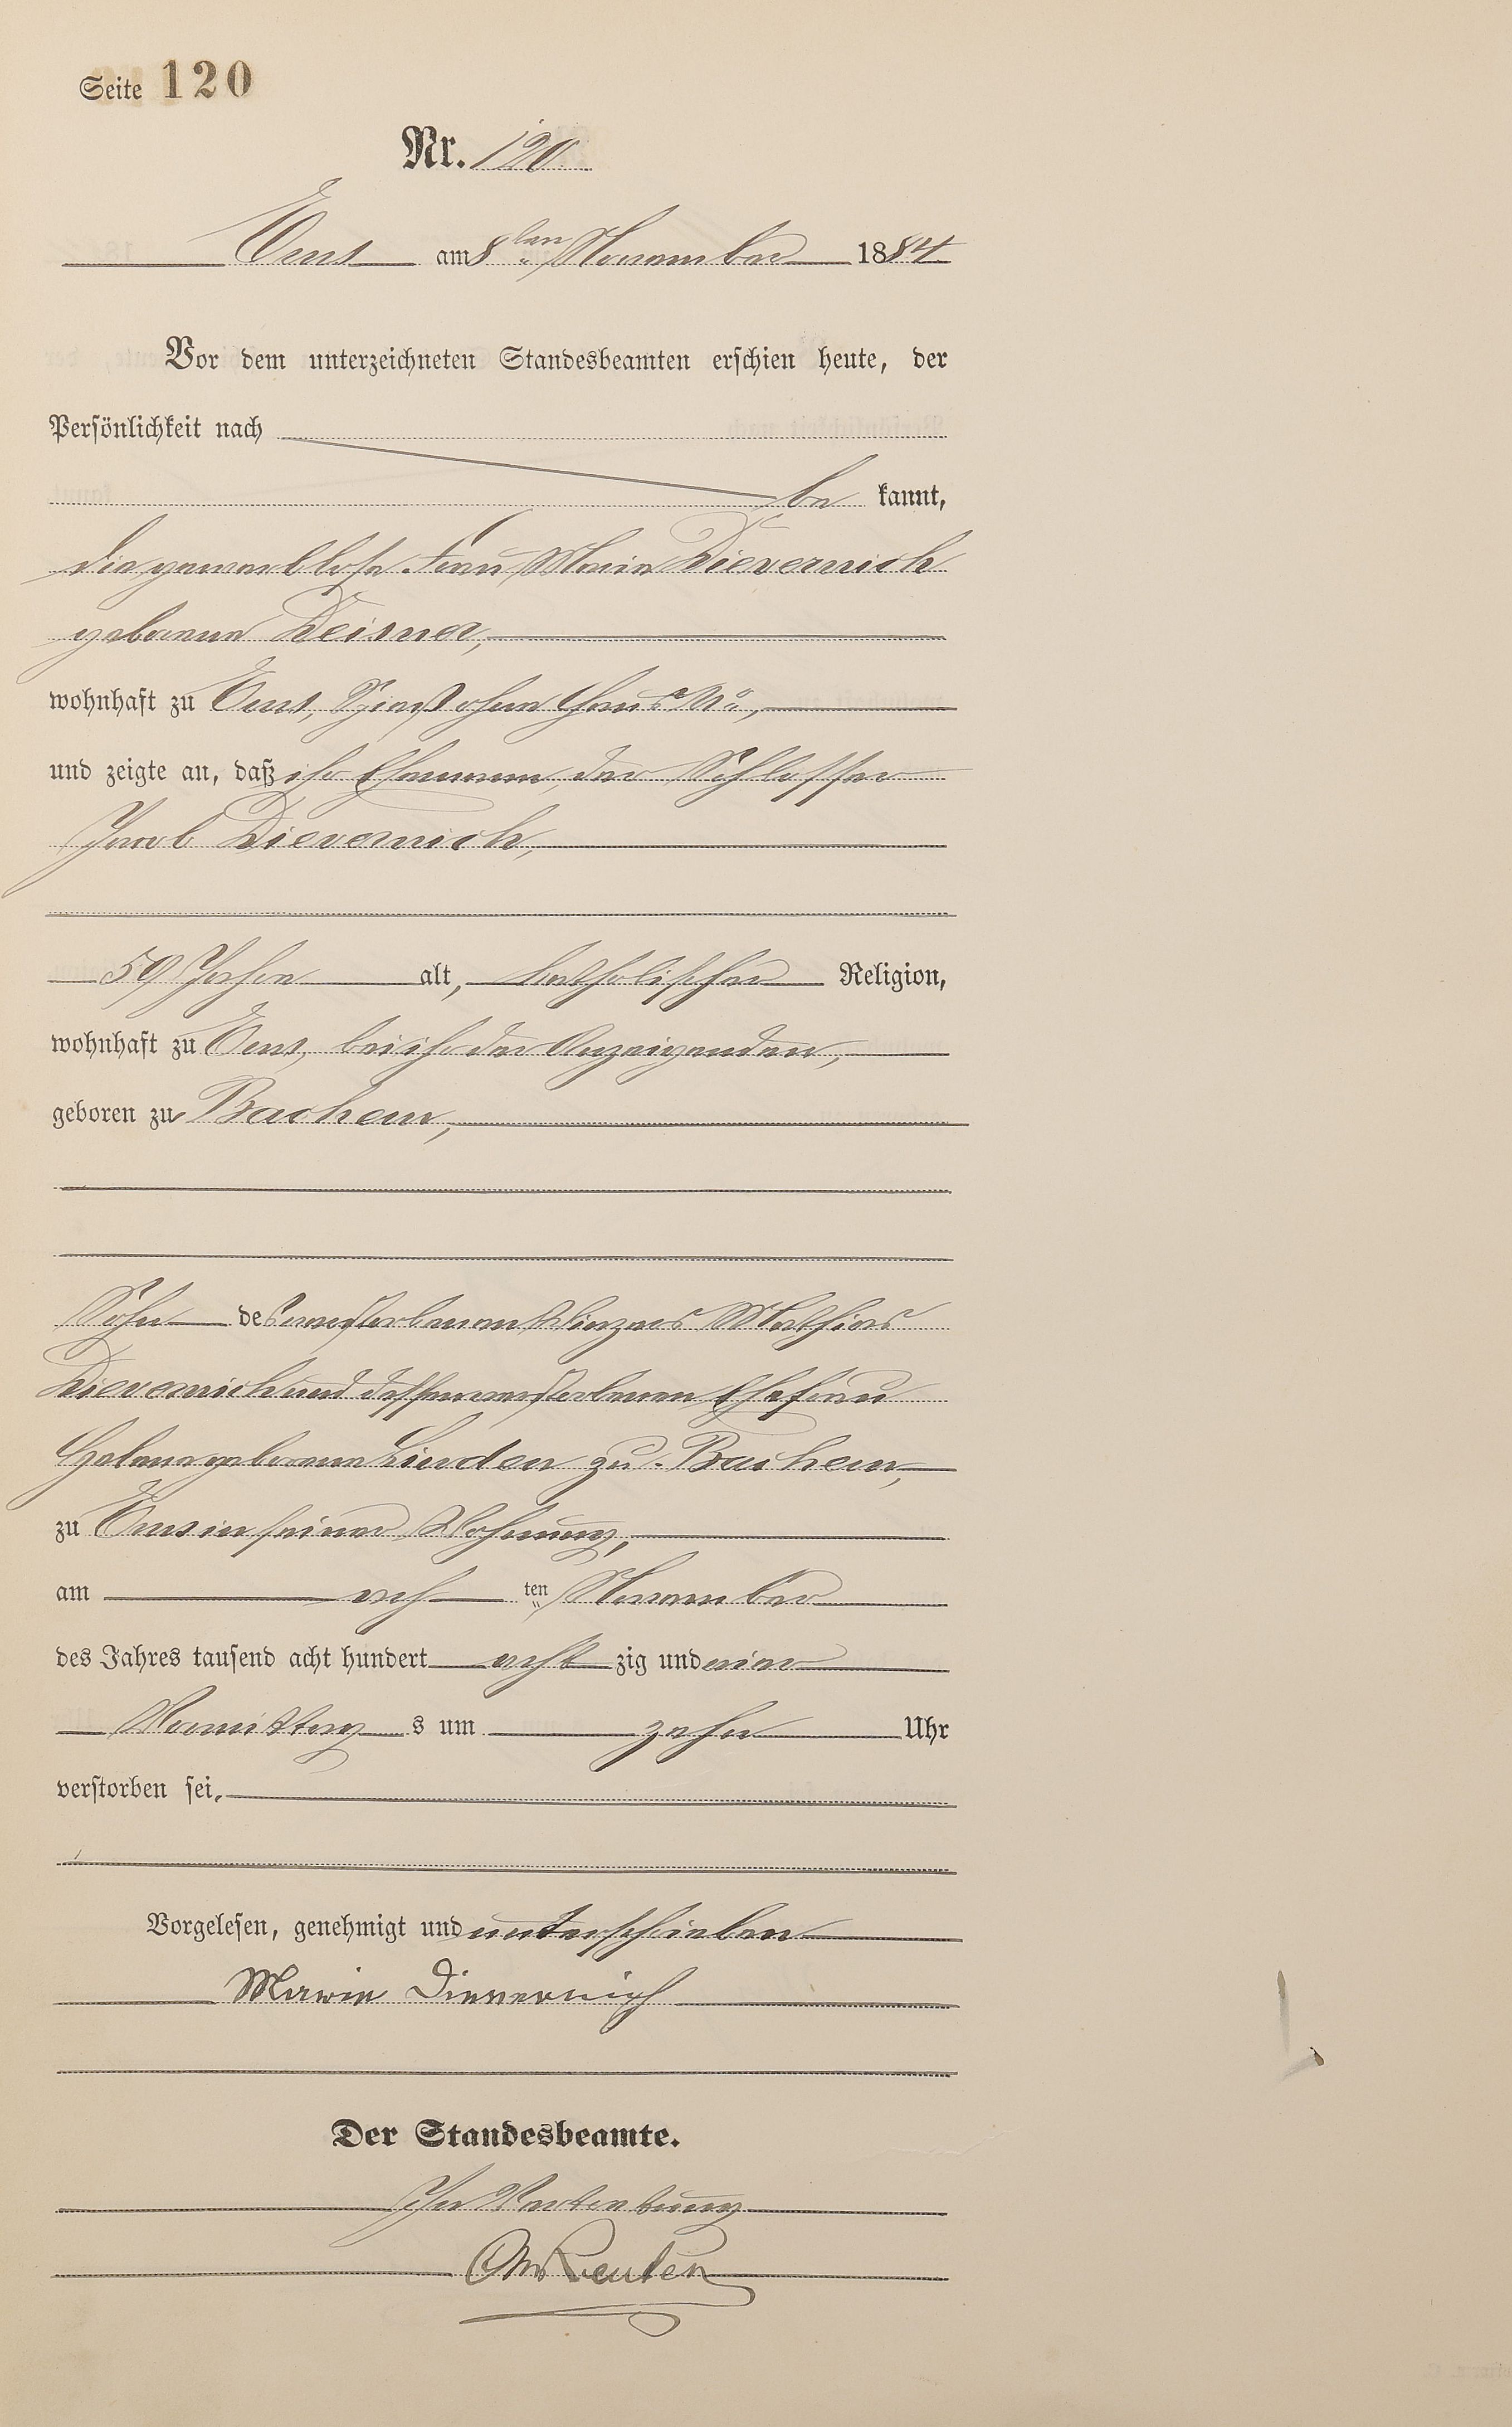 Seite 120
Nr. 120
Ems am 8ten November 1884
Vor dem unterzeichneten Standesbeamten erschien heute, der
Persönlichkeit nach
be kannt,
die gewerblose Frau Marie Dievernich
geborene Deisner,
wohnhaft zu Ems, Spieß ohne Haus No,
und zeigte an, daß ihr Ehemann, der Schlosser
Jacob Dievernich,
59 Jahre alt, katholischer Religion,
wohnhaft zu Ems, bei ihr der Anzeigenden,
geboren zu Bachem,
Sohn des verstorbenen Winzers Mathias
Dievernich und dessen verstorbenen Ehefrau
Helena geborene Linden zu Bachem,
zu Ems in seiner Wohnung,
am ach ten November
des Jahres tausend acht hundert acht zig und vier
Vormittag s um zehn Uhr
verstorben sei.
Vorgelesen, genehmigt und unterschrieben
Marie Dievernich
Der Standesbeamte.
In Vertretung
Reuter